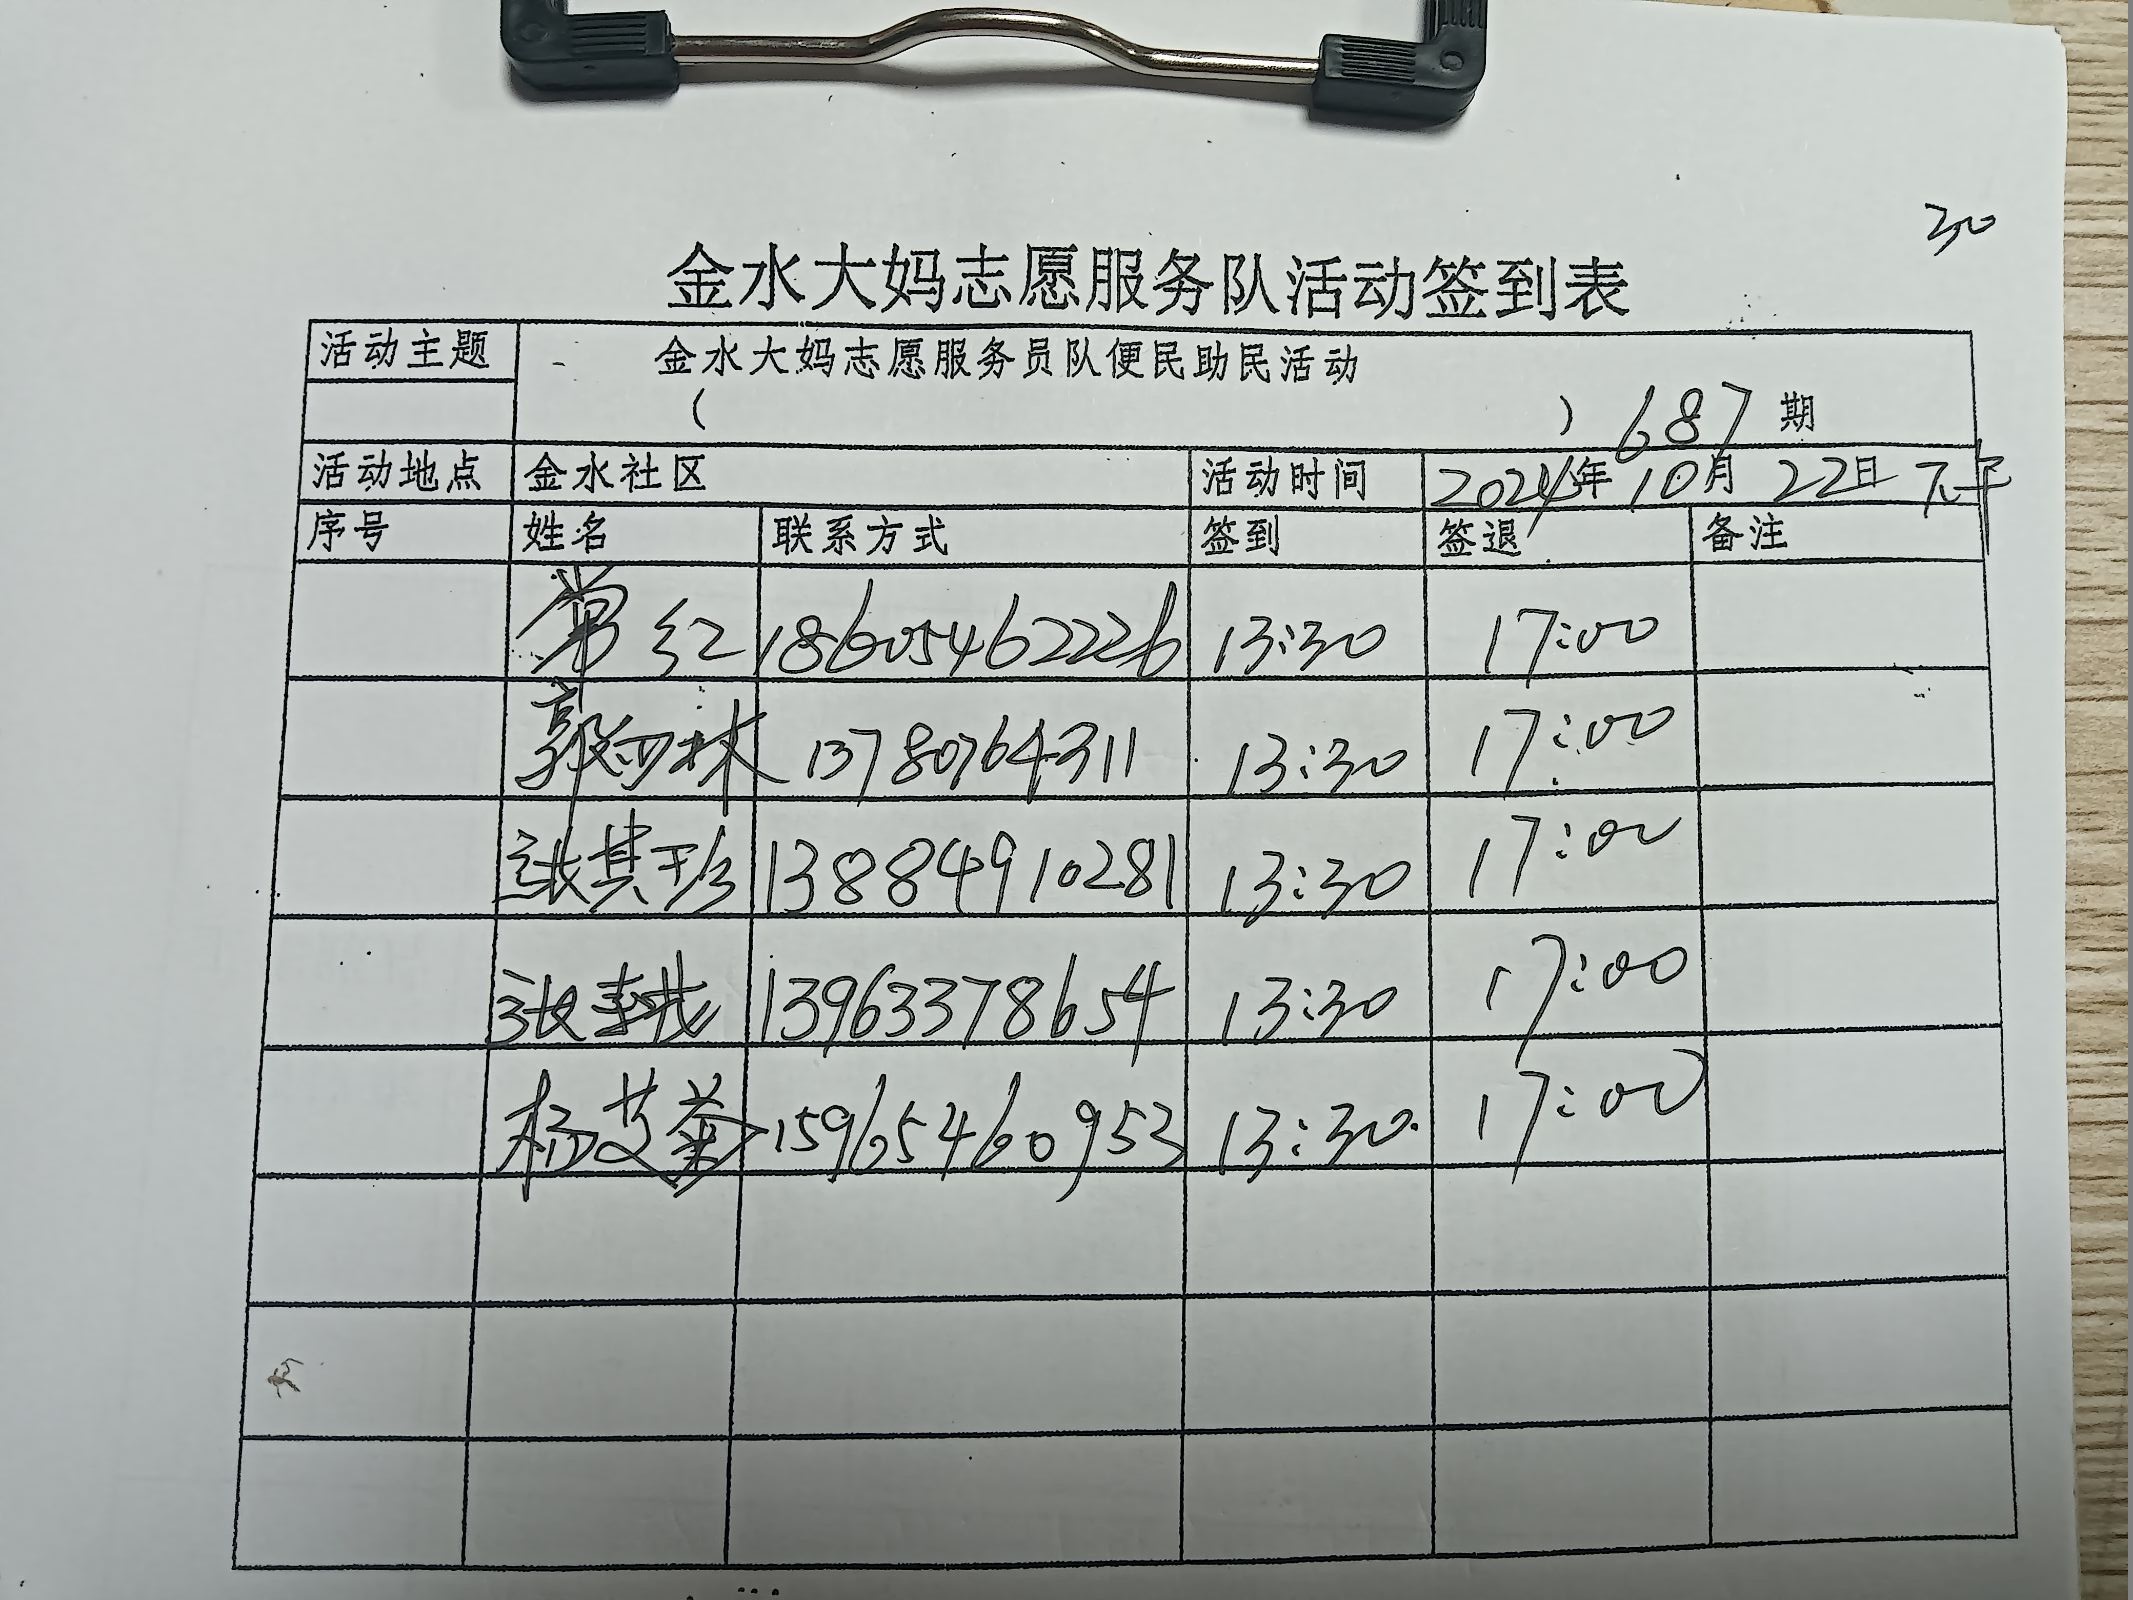 30
金水大妈志愿服务队活动签到表
活动主题 金水大妈志愿服务员队便民助民活动
( ) 687期
活动地点 金水社区 活动时间 2024年10月22日 下午
序号 姓名 联系方式 签到 签退 备注
常红 18605462226 13:30 17:00
郭四林 13780764311 13:30 17:00
张其珍 13884910281 13:30 17:00
张 13963378654 13:30 17:00
杨艾菊 15965460953 13:30 17:00